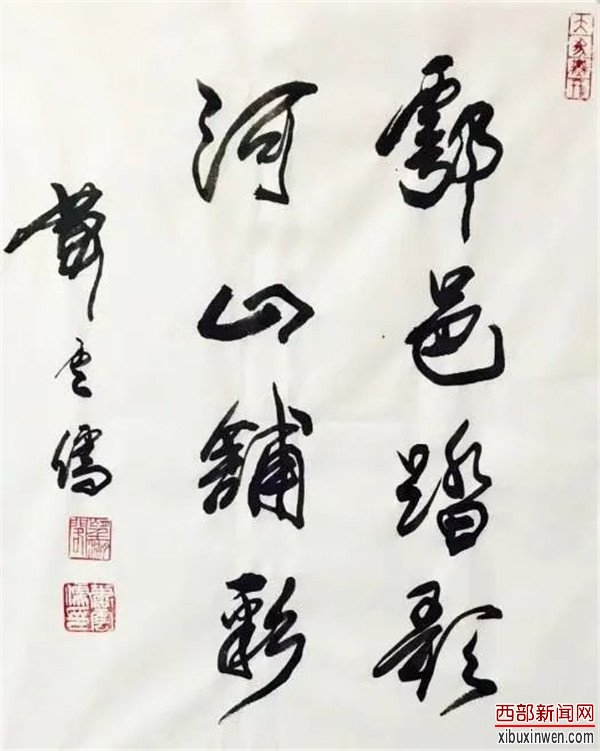 鄠邑踏歌
河山舖彩
萧云儒
西部新闻网
xibuxinwen.com